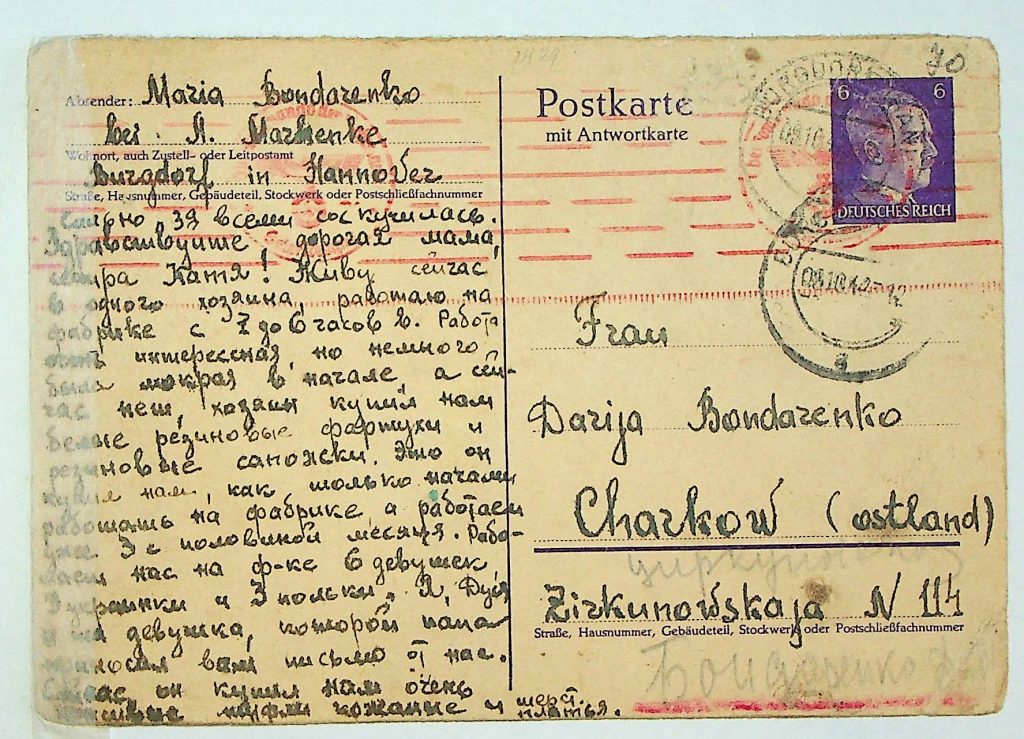 Absender: Maria Bondarenko
bei A. Markenke
Wohnort, auch Zustell- oder Leitpostamt
Burgdorf in Hannover
Straße, Hausnummer, Gebäudeteil, Stockwerk oder Postschließfachnummer
за всеми соскучилась.
Здравствуйте дорогая мама,
сестра Катя! Живу сейчас
в одного хозяина, работаю на
фабрике с 7 до 6 часов в. Работа
очень интерессная, но немного
была мокрая в начале, а сей-
час нет, хозяин купил нам
белые резиновые фартухи и
резиновые сапожки. Это он
купил нам, как только начали
работать на фабрике, а работаем
уже 3 с половиной месяця. Рабо-
таем нас на ф-ке 6 девушек,
3 украинки и 3 польки. Я, Дуся
и та девушка, которой папа
приносил вам письмо от нас.
Сейчас он купил нам очень
туфли кожание и шерст.
платья.
Postkarte
mit Antwortkarte
6 6
DEUTSCHES REICH
70
08.10.42-12
a
Frau
Darija Bondarenko
Charkow (ostland)
Zirkunowskaja N 114
Straße, Hausnummer, Gebäudeteil, Stockwerk oder Postschließfachnummer
Бондаренко